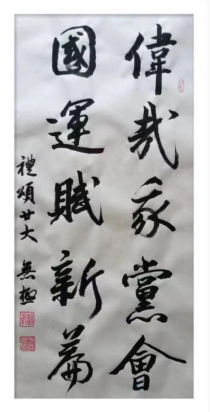 偉哉我黨會
國運賦新篇
禮頌廿大 無極